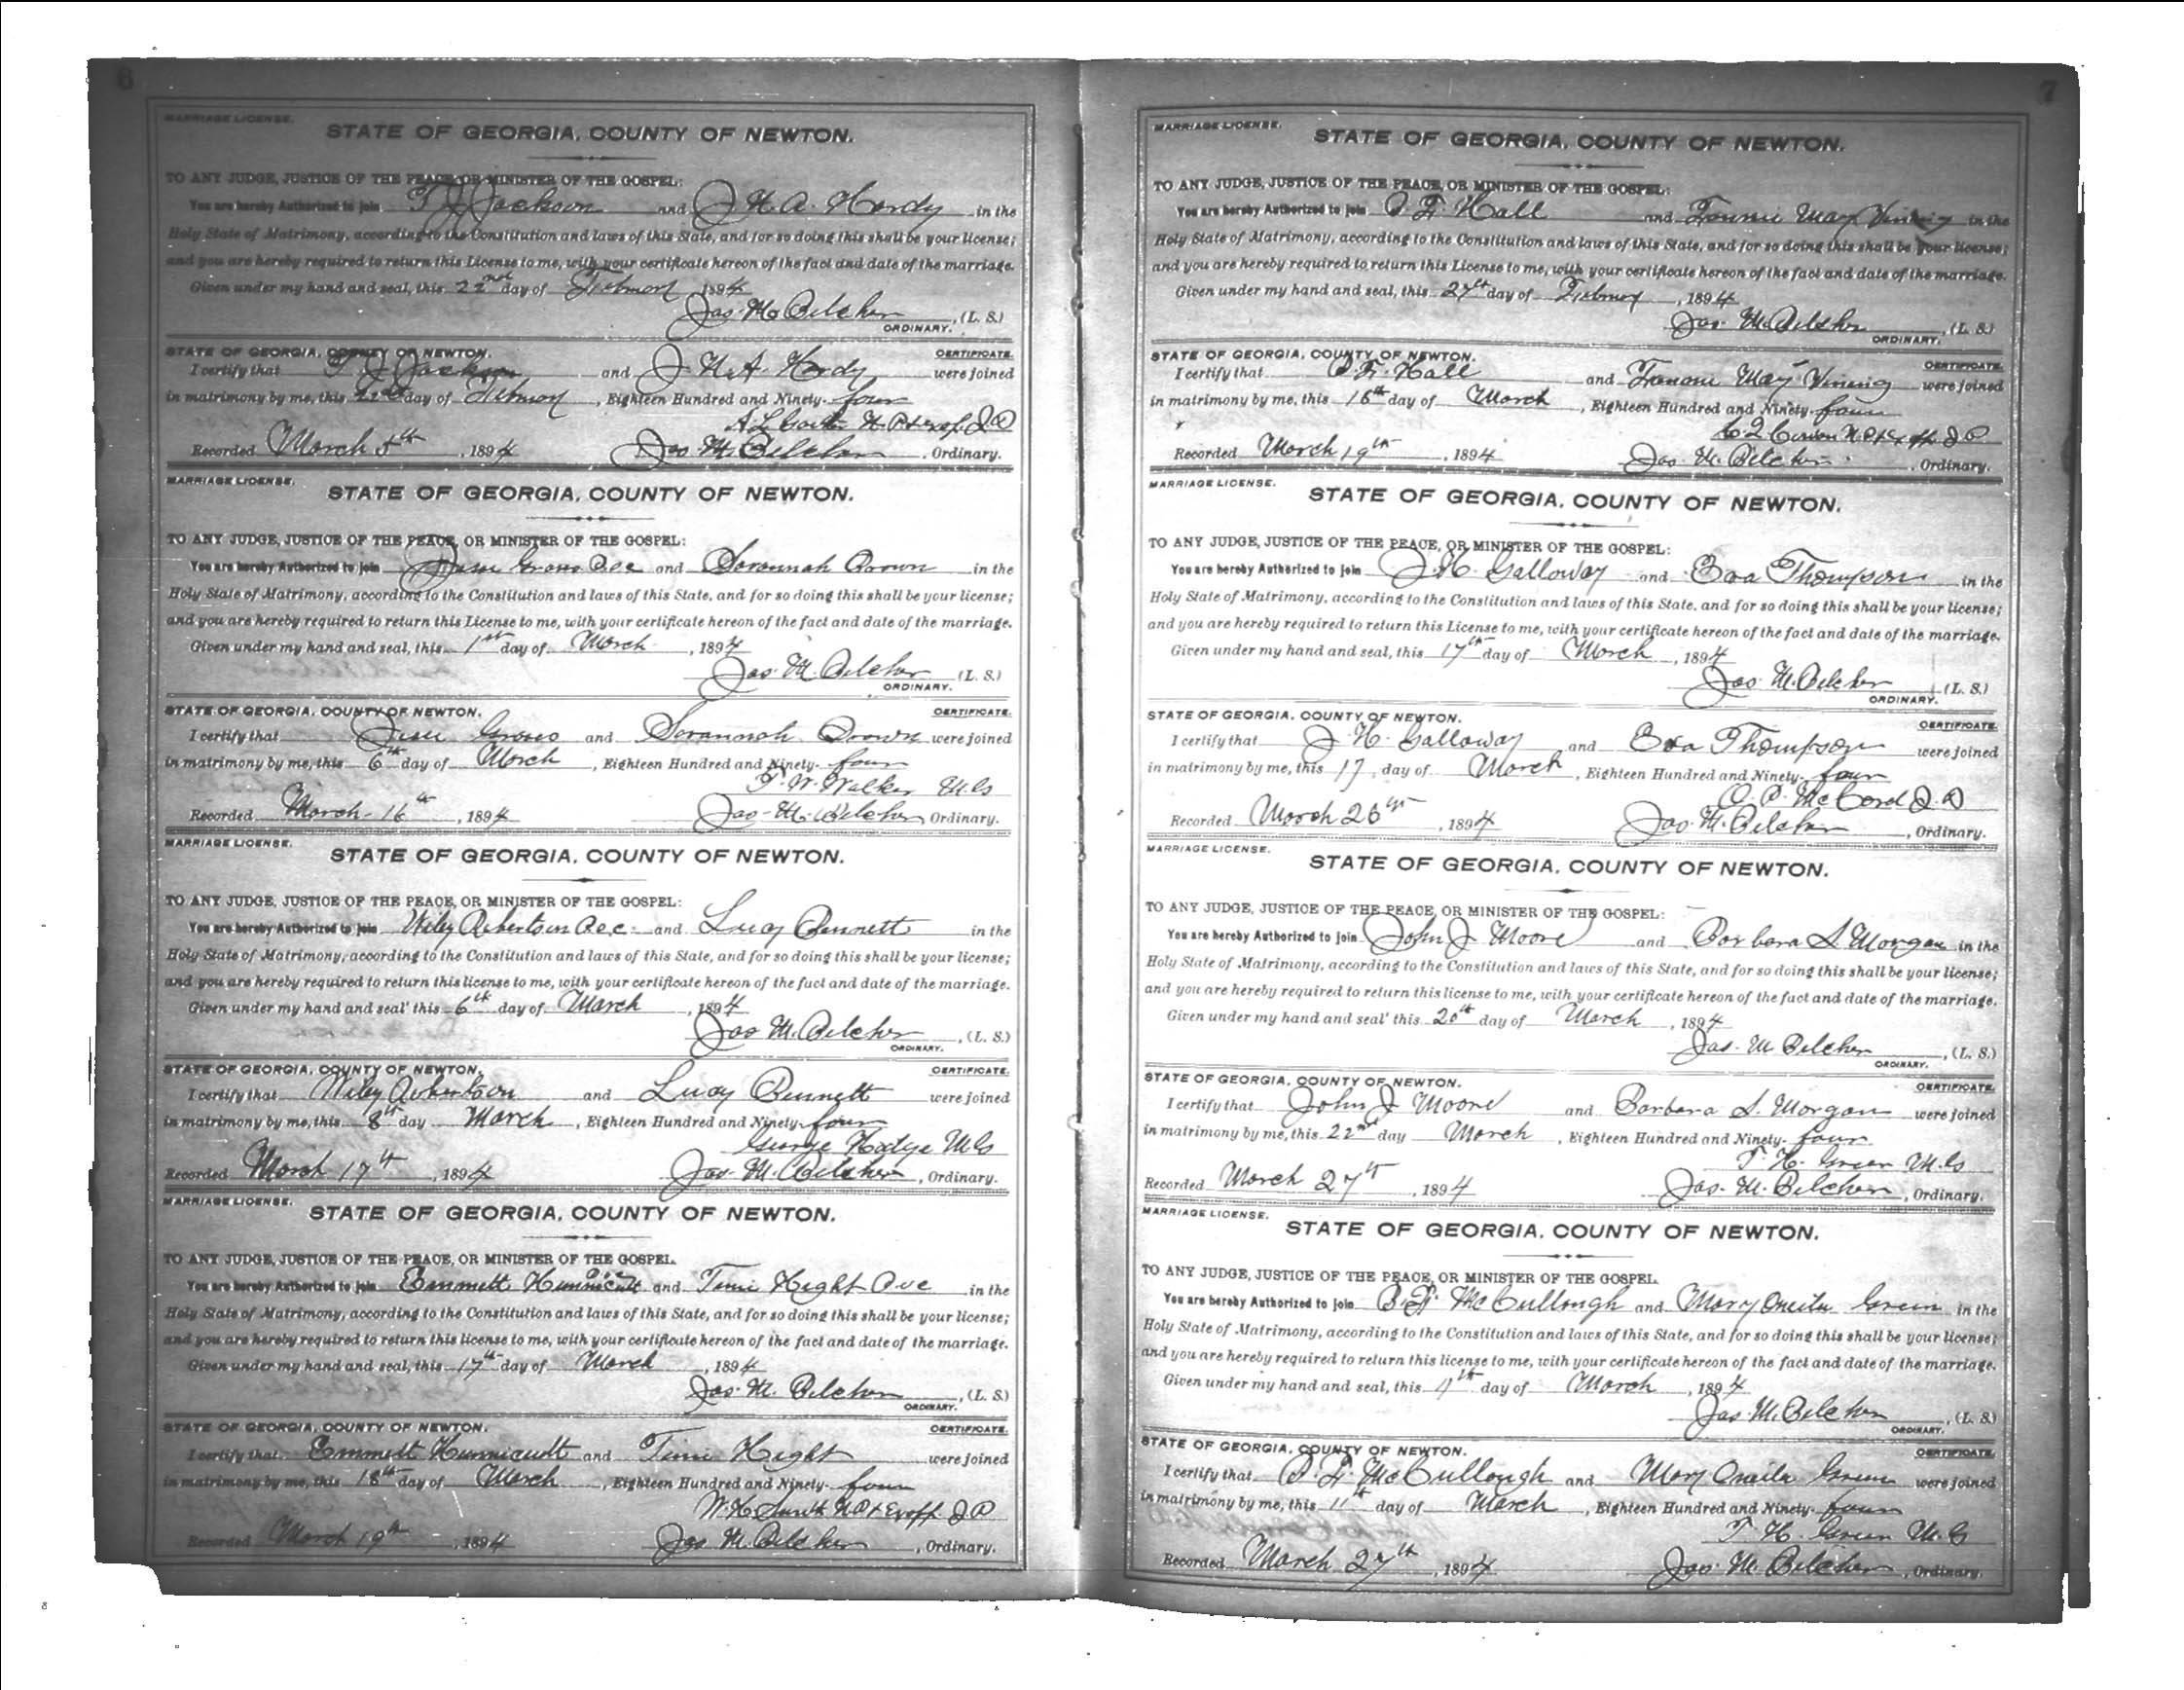 6
MARRIAGE LICENSE.
STATE OF GEORGIA, COUNTY OF NEWTON.
TO ANY JUDGE, JUSTICE OF THE PEACE, OR MINISTER OF THE GOSPEL:
You are hereby Authorized to join T J Jackson and J N. A. Hardy in the
Holy State of Matrimony, according to the Constitution and laws of this State, and for so doing this shall be your license;
and you are hereby required to return this License to me, with your certificate hereon of the fact and date of the marriage.
Given under my hand and seal, this 22nd day of February 1894
Jas. M. Belcher, (L. S.)
ORDINARY.
STATE OF GEORGIA, COUNTY OF NEWTON. CERTIFICATE.
I certify that T. J. Jackson and J. N. A. Hardy were joined
in matrimony by me, this 22nd day of February, Eighteen Hundred and Ninety-four
N. P. & J. P.
Recorded March 5th, 1894 Jas. M. Belcher, Ordinary.
MARRIAGE LICENSE.
STATE OF GEORGIA, COUNTY OF NEWTON.
TO ANY JUDGE, JUSTICE OF THE PEACE, OR MINISTER OF THE GOSPEL:
You are hereby Authorized to join Jesse and Savannah Brown in the
Holy State of Matrimony, according to the Constitution and laws of this State, and for so doing this shall be your license;
and you are hereby required to return this License to me, with your certificate hereon of the fact and date of the marriage.
Given under my hand and seal, this 1st day of March, 1894
Jas. M. Belcher (L. S.)
ORDINARY.
STATE OF GEORGIA, COUNTY OF NEWTON. CERTIFICATE.
I certify that Jesse and Savannah Brown were joined
in matrimony by me, this 6th day of March, Eighteen Hundred and Ninety-four
T. W. Walker M.G
Recorded March 16th, 1894 Jas. M. Belcher Ordinary.
MARRIAGE LICENSE.
STATE OF GEORGIA, COUNTY OF NEWTON.
TO ANY JUDGE, JUSTICE OF THE PEACE, OR MINISTER OF THE GOSPEL:
You are hereby Authorized to join Wiley Robertson and Lucy Bennett in the
Holy State of Matrimony, according to the Constitution and laws of this State, and for so doing this shall be your license;
and you are hereby required to return this license to me, with your certificate hereon of the fact and date of the marriage.
Given under my hand and seal' this 6th day of March, 1894
Jas M. Belcher, (L. S.)
ORDINARY.
STATE OF GEORGIA, COUNTY OF NEWTON. CERTIFICATE.
I certify that Wiley Robertson and Lucy Bennett were joined
in matrimony by me, this 8th day March, Eighteen Hundred and Ninety-four
George Hodge M.G
Recorded March 17th, 1894 Jas. M. Belcher, Ordinary.
MARRIAGE LICENSE.
STATE OF GEORGIA, COUNTY OF NEWTON.
TO ANY JUDGE, JUSTICE OF THE PEACE, OR MINISTER OF THE GOSPEL.
You are hereby Authorized to join Emmett Hunnicutt and Hight in the
Holy State of Matrimony, according to the Constitution and laws of this State, and for so doing this shall be your license;
and you are hereby required to return this license to me, with your certificate hereon of the fact and date of the marriage.
Given under my hand and seal, this 17th day of March, 1894
Jas. M. Belcher, (L. S.)
ORDINARY.
STATE OF GEORGIA, COUNTY OF NEWTON. CERTIFICATE.
I certify that Emmett Hunnicutt and Hight were joined
in matrimony by me, this 18th day of March, Eighteen Hundred and Ninety-four
W. H. Smith N.P. & J. P.
Recorded March 19th, 1894 Jas M. Belcher, Ordinary.
7
MARRIAGE LICENSE.
STATE OF GEORGIA, COUNTY OF NEWTON.
TO ANY JUDGE, JUSTICE OF THE PEACE, OR MINISTER OF THE GOSPEL:
You are hereby Authorized to join Hall and May Vining in the
Holy State of Matrimony, according to the Constitution and laws of this State, and for so doing this shall be your license;
and you are hereby required to return this License to me, with your certificate hereon of the fact and date of the marriage.
Given under my hand and seal, this 27th day of February, 1894
Jas. M. Belcher, (L. S.)
ORDINARY.
STATE OF GEORGIA, COUNTY OF NEWTON. CERTIFICATE.
I certify that Hall and May Vining were joined
in matrimony by me, this 16th day of March, Eighteen Hundred and Ninety-four
N.P. & J P
Recorded March 19th, 1894 Jas. M. Belcher, Ordinary.
MARRIAGE LICENSE.
STATE OF GEORGIA, COUNTY OF NEWTON.
TO ANY JUDGE, JUSTICE OF THE PEACE, OR MINISTER OF THE GOSPEL:
You are hereby Authorized to join J. H. Galloway and Eva Thompson in the
Holy State of Matrimony, according to the Constitution and laws of this State, and for so doing this shall be your license;
and you are hereby required to return this License to me, with your certificate hereon of the fact and date of the marriage.
Given under my hand and seal, this 17th day of March, 1894
Jas. M. Belcher (L. S.)
ORDINARY.
STATE OF GEORGIA, COUNTY OF NEWTON. CERTIFICATE.
I certify that J. H. Galloway and Eva Thompson were joined
in matrimony by me, this 17 day of March, Eighteen Hundred and Ninety-four
McCord J. P.
Recorded March 26th, 1894 Jas. M. Belcher, Ordinary.
MARRIAGE LICENSE.
STATE OF GEORGIA, COUNTY OF NEWTON.
TO ANY JUDGE, JUSTICE OF THE PEACE, OR MINISTER OF THE GOSPEL:
You are hereby Authorized to join John J Moore and Barbara S. Morgan in the
Holy State of Matrimony, according to the Constitution and laws of this State, and for so doing this shall be your license;
and you are hereby required to return this license to me, with your certificate hereon of the fact and date of the marriage.
Given under my hand and seal' this 20th day of March, 1894
Jas. M Belcher, (L. S.)
ORDINARY.
STATE OF GEORGIA, COUNTY OF NEWTON. CERTIFICATE.
I certify that John J Moore and Barbara S. Morgan were joined
in matrimony by me, this 22nd day March, Eighteen Hundred and Ninety-four
T. H. Green M.G
Recorded March 27th, 1894 Jas. M. Belcher, Ordinary.
MARRIAGE LICENSE.
STATE OF GEORGIA, COUNTY OF NEWTON.
TO ANY JUDGE, JUSTICE OF THE PEACE, OR MINISTER OF THE GOSPEL.
You are hereby Authorized to join McCullough and Mary Green in the
Holy State of Matrimony, according to the Constitution and laws of this State, and for so doing this shall be your license;
and you are hereby required to return this license to me, with your certificate hereon of the fact and date of the marriage.
Given under my hand and seal, this day of March, 1894
Jas. M. Belcher, (L. S.)
ORDINARY.
STATE OF GEORGIA, COUNTY OF NEWTON. CERTIFICATE.
I certify that McCullough and Mary Green were joined
in matrimony by me, this 11th day of March, Eighteen Hundred and Ninety-four
T. H. Green M.G
Recorded March 27th, 1894 Jas. M. Belcher, Ordinary.